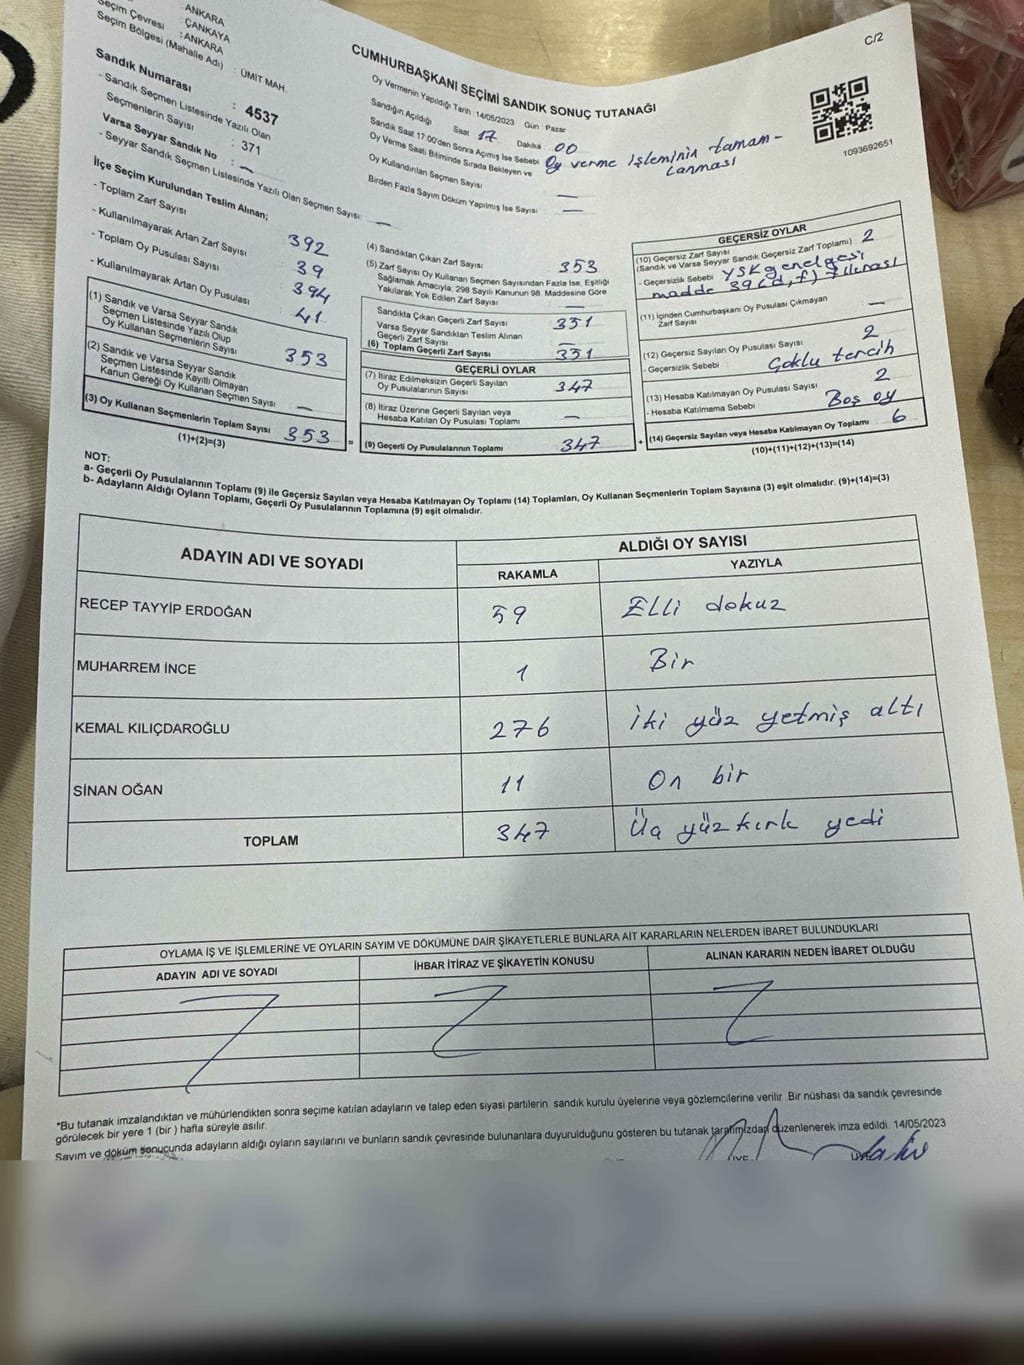 ANKARA
Seçim Çevresi : ÇANKAYA
: ANKARA
Seçim Bölgesi (Mahalle Adı) : ÜMİT MAH.
Sandık Numarası : 4537
- Sandık Seçmen Listesinde Yazılı Olan
Seçmenlerin Sayısı : 371
Varsa Seyyar Sandık No : —
- Seyyar Sandık Seçmen Listesinde Yazılı Olan Seçmen Sayısı : —
C/2
CUMHURBAŞKANI SEÇİMİ SANDIK SONUÇ TUTANAĞI
Oy Vermenin Yapıldığı Tarih : 14/05/2023 Gün : Pazar
Sandığın Açıldığı Saat 17 Dakika 00
Sandık Saat 17:00'den Sonra Açılmış İse Sebebi Oy verme işleminin tamam-
lanması
Oy Verme Saati Bitiminde Sırada Bekleyen ve
Oy Kullandırılan Seçmen Sayısı : —
Birden Fazla Sayım Döküm Yapılmış İse Sayısı : —
1093692651
İlçe Seçim Kurulundan Teslim Alınan;
- Toplam Zarf Sayısı 392
- Kullanılmayarak Artan Zarf Sayısı 39
- Toplam Oy Pusulası Sayısı 394
- Kullanılmayarak Artan Oy Pusulası 41
(1) Sandık ve Varsa Seyyar Sandık
Seçmen Listesinde Yazılı Olup
Oy Kullanan Seçmenlerin Sayısı 353
(2) Sandık ve Varsa Seyyar Sandık
Seçmen Listesinde Kayıtlı Olmayan
Kanun Gereği Oy Kullanan Seçmen Sayısı —
(3) Oy Kullanan Seçmenlerin Toplam Sayısı 353
(1)+(2)=(3)
(4) Sandıktan Çıkan Zarf Sayısı 353
(5) Zarf Sayısı Oy Kullanan Seçmen Sayısından Fazla İse, Eşitliği
Sağlamak Amacıyla, 298 Sayılı Kanunun 98. Maddesine Göre
Yakılarak Yok Edilen Zarf Sayısı —
Sandıkta Çıkan Geçerli Zarf Sayısı 351
Varsa Seyyar Sandıktan Teslim Alınan
Geçerli Zarf Sayısı —
(6) Toplam Geçerli Zarf Sayısı 351
GEÇERLİ OYLAR
(7) İtiraz Edilmeksizin Geçerli Sayılan
Oy Pusulalarının Sayısı 347
(8) İtiraz Üzerine Geçerli Sayılan veya
Hesaba Katılan Oy Pusulası Toplamı —
= (9) Geçerli Oy Pusulalarının Toplamı 347
GEÇERSİZ OYLAR
(10) Geçersiz Zarf Sayısı
(Sandık ve Varsa Seyyar Sandık Geçersiz Zarf Toplamı) 2
- Geçersizlik Sebebi YSK genelgesi
madde 39 (d,f) fıkrası
(11) İçinden Cumhurbaşkanı Oy Pusulası Çıkmayan
Zarf Sayısı —
(12) Geçersiz Sayılan Oy Pusulası Sayısı 2
- Geçersizlik Sebebi Çoklu tercih
(13) Hesaba Katılmayan Oy Pusulası Sayısı 2
- Hesaba Katılmama Sebebi Boş oy
+ (14) Geçersiz Sayılan veya Hesaba Katılmayan Oy Toplamı 6
(10)+(11)+(12)+(13)=(14)
NOT:
a- Geçerli Oy Pusulalarının Toplamı (9) ile Geçersiz Sayılan veya Hesaba Katılmayan Oy Toplamı (14) Toplamları, Oy Kullanan Seçmenlerin Toplam Sayısına (3) eşit olmalıdır. (9)+(14)=(3)
b- Adayların Aldığı Oyların Toplamı, Geçerli Oy Pusulalarının Toplamına (9) eşit olmalıdır.
ADAYIN ADI VE SOYADI
ALDIĞI OY SAYISI
RAKAMLA YAZIYLA
RECEP TAYYİP ERDOĞAN 59 Elli dokuz
MUHARREM İNCE 1 Bir
KEMAL KILIÇDAROĞLU 276 iki yüz yetmiş altı
SİNAN OĞAN 11 On bir
TOPLAM 347 Üç yüz kırk yedi
OYLAMA İŞ VE İŞLEMLERİNE VE OYLARIN SAYIM VE DÖKÜMÜNE DAİR ŞİKAYETLERLE BUNLARA AİT KARARLARIN NELERDEN İBARET BULUNDUKLARI
ADAYIN ADI VE SOYADI İHBAR İTİRAZ VE ŞİKAYETİN KONUSU ALINAN KARARIN NEDEN İBARET OLDUĞU
*Bu tutanak imzalandıktan ve mühürlendikten sonra seçime katılan adayların ve talep eden siyasi partilerin sandık kurulu üyelerine veya gözlemcilerine verilir. Bir nüshası da sandık çevresinde
görülecek bir yere 1 (bir ) hafta süreyle asılır.
Sayım ve döküm sonucunda adayların aldığı oyların sayılarını ve bunların sandık çevresinde bulunanlara duyurulduğunu gösteren bu tutanak tarafımızdan düzenlenerek imza edildi. 14/05/2023